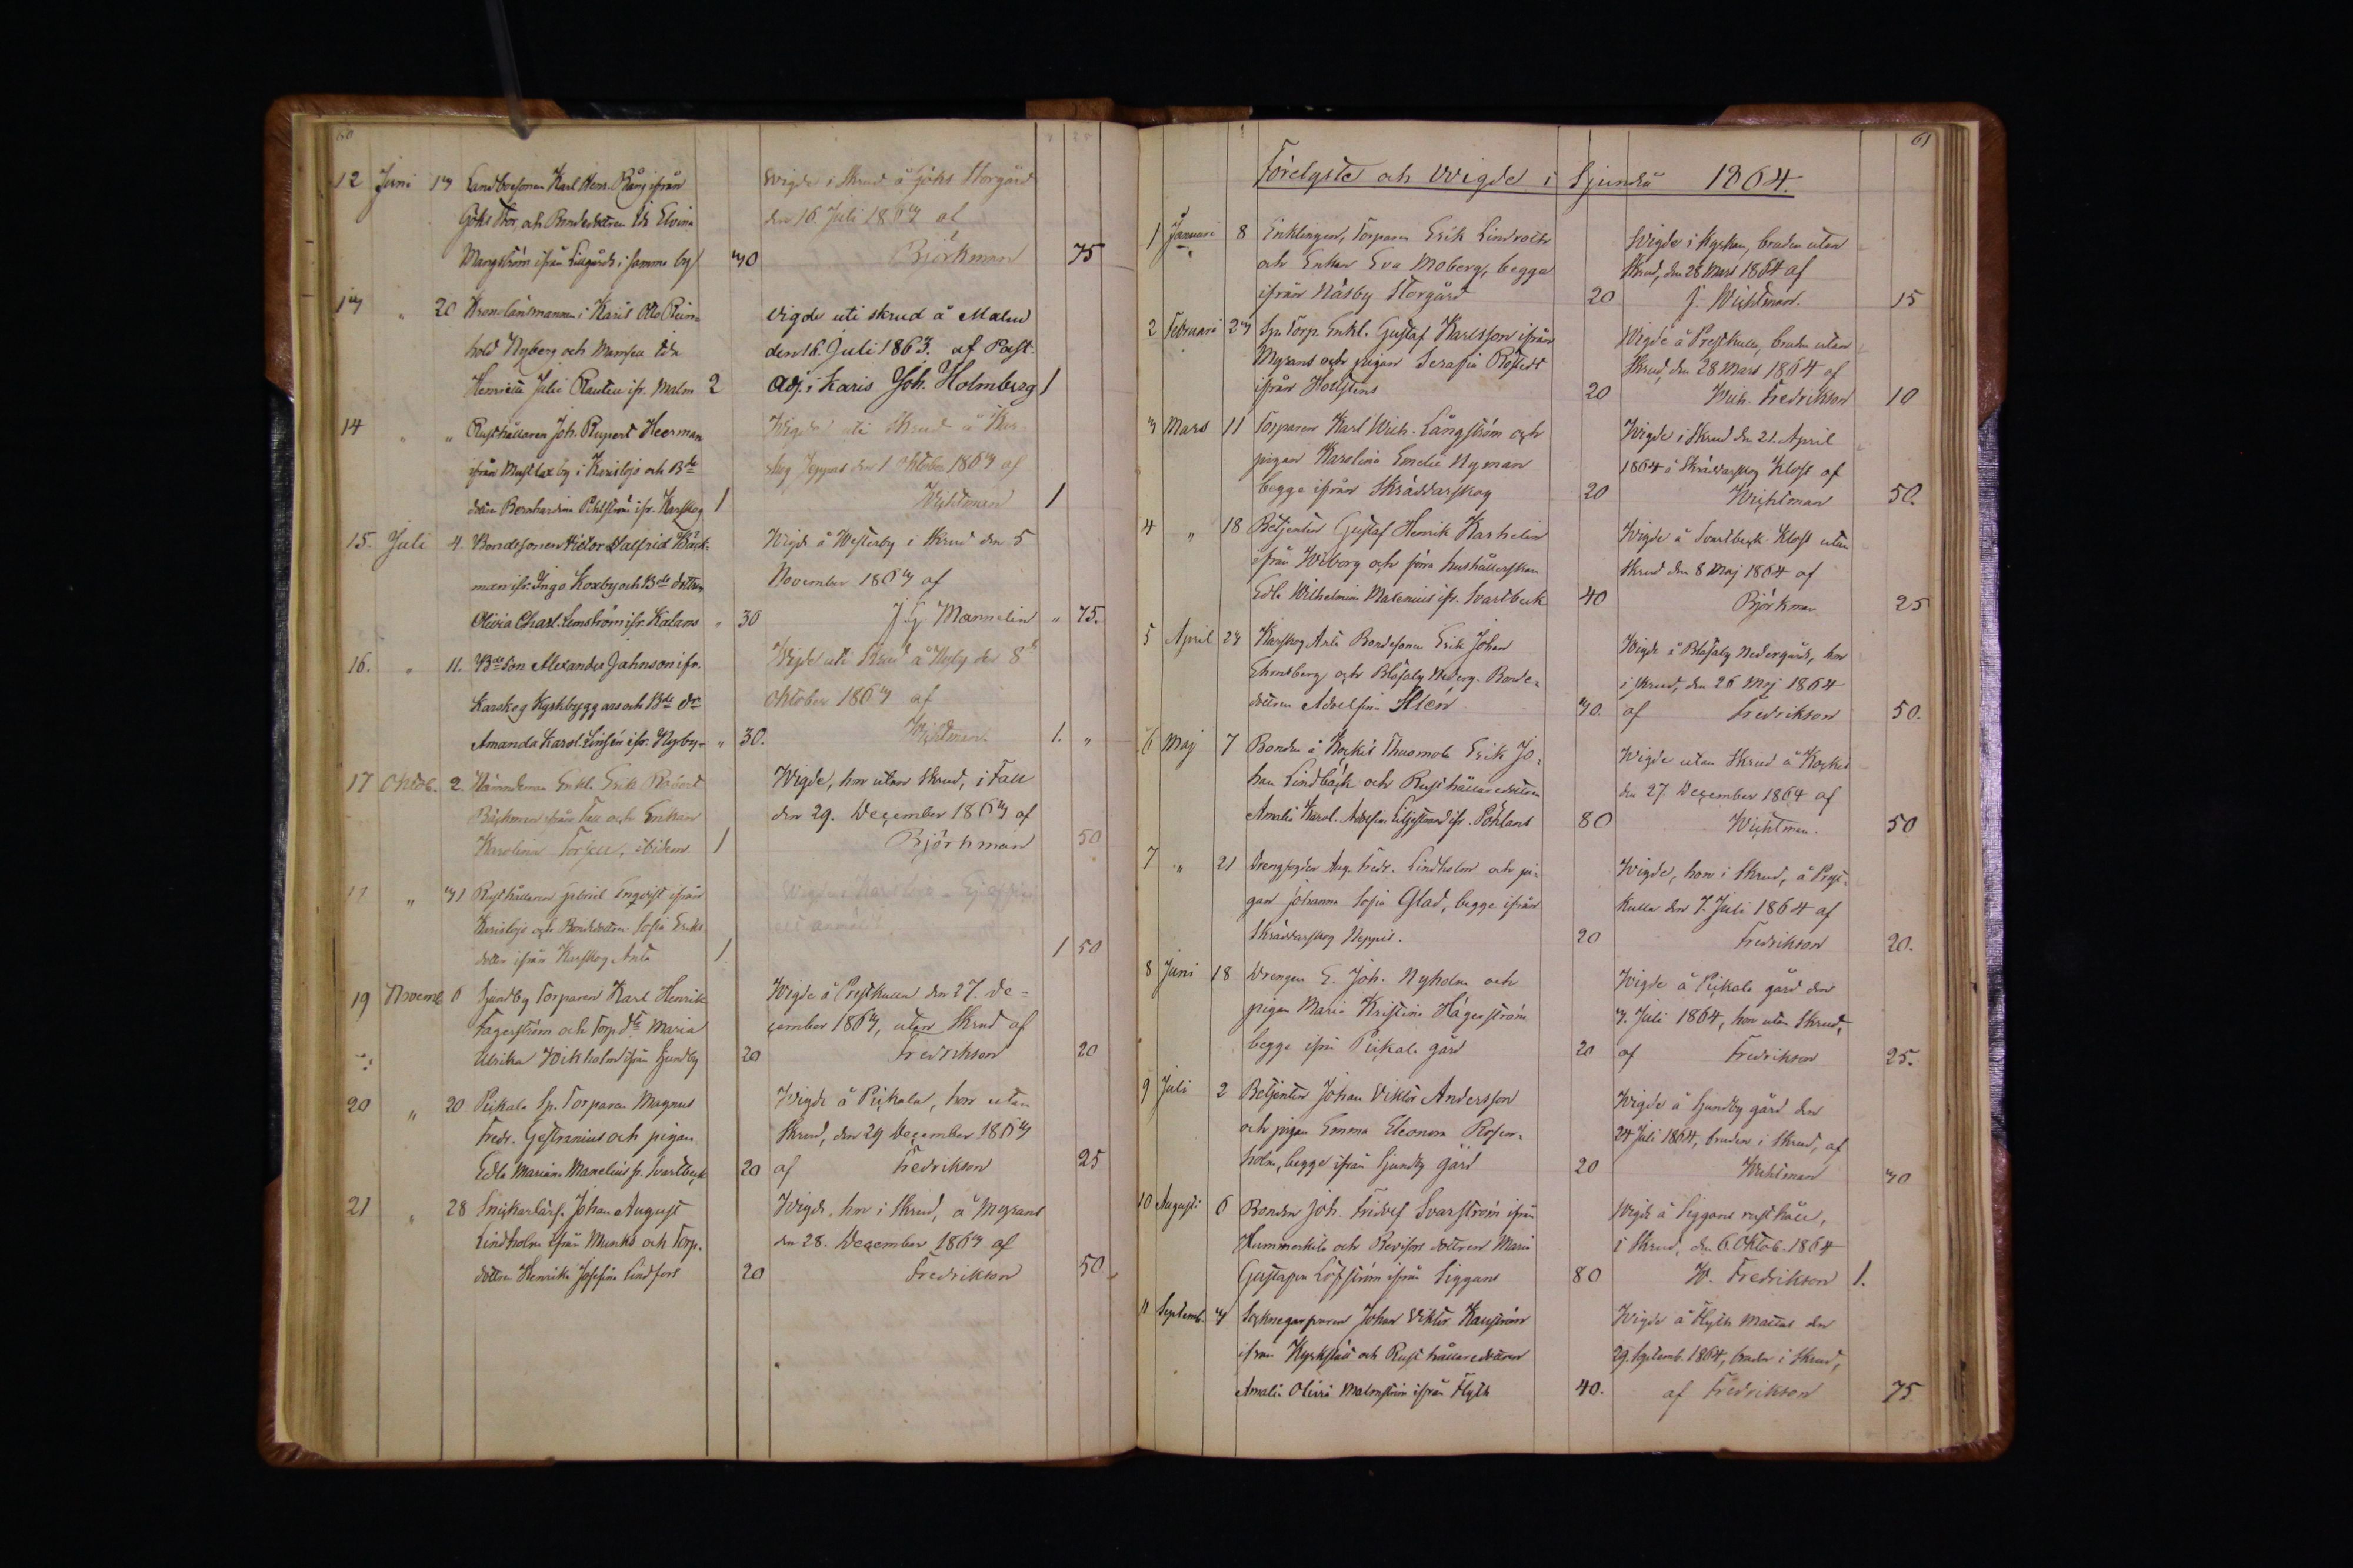 60
12 Juni 13 Landbosonen Karl Henr. Bång ifrån
Göks Stor, och Bondedottren Ida Elvina
Mangström ifrån Lillgårds i samma by 30
Wigde i Skrud å Göks Storgård
den 16 Juli 1863 af
Björkman 75
13 " 20 Kronolänsmannen i Karis Otto Rein=
hold Nyberg och Mamsell Ida
Henrietta Julie Rautell ifr. Malm 2
Vigde uti skrud å Malm
den 16. Juli 1863. af Past.
Adj. i Karis Joh. Holmberg 1
14 " " Rusthållaren Joh. Rupert Heerman
ifrån Mustlax by i Karislojo och Bde
dottren Bernhardina Pihlström ifr. Karskog 1
Wigde uti Skrud å Kar=
skog Jeppas den 1 Oktober 1863 af
Wichtman 1
15. Juli 4. Bondesonen Victor Walfrid Bäck=
man ifr. Ingo Koxby och Bde dottren
Olivia Charl. Lemström ifr. Kalans " 30
Wigde å Westerby i Skrud den 5
November 1863 af
J. G. Mannelin " 75.
16. " 11. Bde Son Alexander Jahnson ifr.
Karskog Kyrkbyggars och Bde dr
Amanda Karol. Linsén ifr. Nyby " 30.
Wigde uti Skrud å Nyby den 8
Oktober 1863 af
Wichtman. 1. "
17 Oktob. 2. Nämndeman Enkl. Erik Robert
Bäckman ifrån Fall och Enkan
Karolina Forsell, ibidem 1
Wigde, hon utan Skrud, i Fall
den 29. December 1863 af
Björkman 50
" 31 Rusthållaren Gabriel Enqvist ifrån
Karislojo och Bondedottren Sofia Eriks
dotter ifrån Karskog Antä 1.
1 50
19 Novemb. 8 Sjundby Torparen Karl Henrik
Fagerström och Torp dtr Maria
Ulrika Wikholm ifrån Sjundby 20
Wigde å Prestkulla den 27. De=
cember 1863, utan Skrud af
Fredrikson 20
20 " 20 Pickala Sp. Torparen Magnus
Fredr. Gestranius och pigan
Edla Mariana Manelius fr. Svartbeck 20
Wigde å Pickala, hon utan
Skrud, den 29 December 1863
af Fredrikson 25
21 " 28 Snickarlärl. Johan August
Lindholm ifrån Munks och Torp.
dottren Henrika Josefina Lindfors 20
Wigde, hon i Skrud, å Myrans
den 28. December 1863 af
Fredrikson 50
61
Förelyste och Wigde i Sjundeå 1864.
1 Januari 8 Enklingen, Torparen Erik Lindroth
och Enkan Eva Moberg, begge
ifrån Näsby Storgård 20
Wigde i Kyrkan, bruden utan
Skrud, den 28 Mars 1864 af
J. Wichtman. 15
2 Februari 27 Sp. Torp. Enkl. Gustaf Karlsson ifrån
Myrans och pigan Serafia Rostedt
ifrån Hollstens 20
Wigde å Prestkulla, bruden utan
Skrud, den 28 Mars 1864 af
Wilh. Fredrikson 10
3 Mars 11 Torparen Karl Wilh. Långström och
pigan Karolina Emelie Nyman
begge ifrån Skräddarskog 20
Wigde i Skrud den 21. April
1864 å Skräddarskog Klost af
Wichtman 50.
4 " 18 Betjenten Gustaf Henrik Karhelin
ifrån Wiborg och förra hushållerskan
Edla Wilhelmina Malenius ifr. Svartbeck 40
Wigde å Svartbeck Klost utan
Skrud den 8 Maj 1864 af
Björkman 25
5 April 24 Karskog Antä Bondesonen Erik Johan
Ehrnsberg och Blåfalg Nederg. Bonde=
dottren Adolfina Alén 30.
Wigde å Blåfalg Nedergård, hon
i skrud, den 26 Maj 1864
af Fredrikson 50.
6 Maj 7 Bonden å Kockis Thuomola Erik Jo=
han Lindbäck och Rusthållaredottren
Amalia Karol. Adolfina Liljestrand ifr. Pöhlans 80
Wigde utan Skrud å Kockis
den 27. December 1864 af
Wichtman. 50
7 " 21 Drengfogden Aug. Fredr. Lindholm och pi=
gan Johanna Sofia Glad, begge ifrån
Skräddarskog Neppis. 20
Wigde, hon i Skrud, å Prest=
kulla den 7. Juli 1864 af
Fredrikson 20.
8 Juni 18 Drengen E. Joh. Nyholm och
pigan Maria Kristina Hägerström
begge ifrån Pickala gård 20
Wigde å Pickala gård den
3. Juli 1864, hon utan Skrud,
af Fredrikson 25.
9 Juli 2 Betjenten Johan Viktor Andersson
och pigan Emma Eleonora Rosen=
holm, begge ifrån Sjundby gård 20
Wigde å Sjundby gård den
24 Juli 1864, bruden i Skrud, af
Wichtman 30
10 Augusti 6 Bonden Joh. Fridolf Svarström ifrån
Hummerkila och Revisors dottren Maria
Gustafva Löfström ifrån Siggans 80
Wigde å Siggans rusthåll,
i Skrud, den 6. Oktob. 1864
W. Fredrikson 1.
11 Septemb. 3 Socknegarfvaren Johan Viktor Kauström
ifrån Kyrkslätt och Rusthållaredottren
Amalia Olivia Malmström ifrån Flyth 40.
Wigde å Flyth Mattas den
29. Septemb. 1864, bruden i Skrud,
af Fredrikson 75